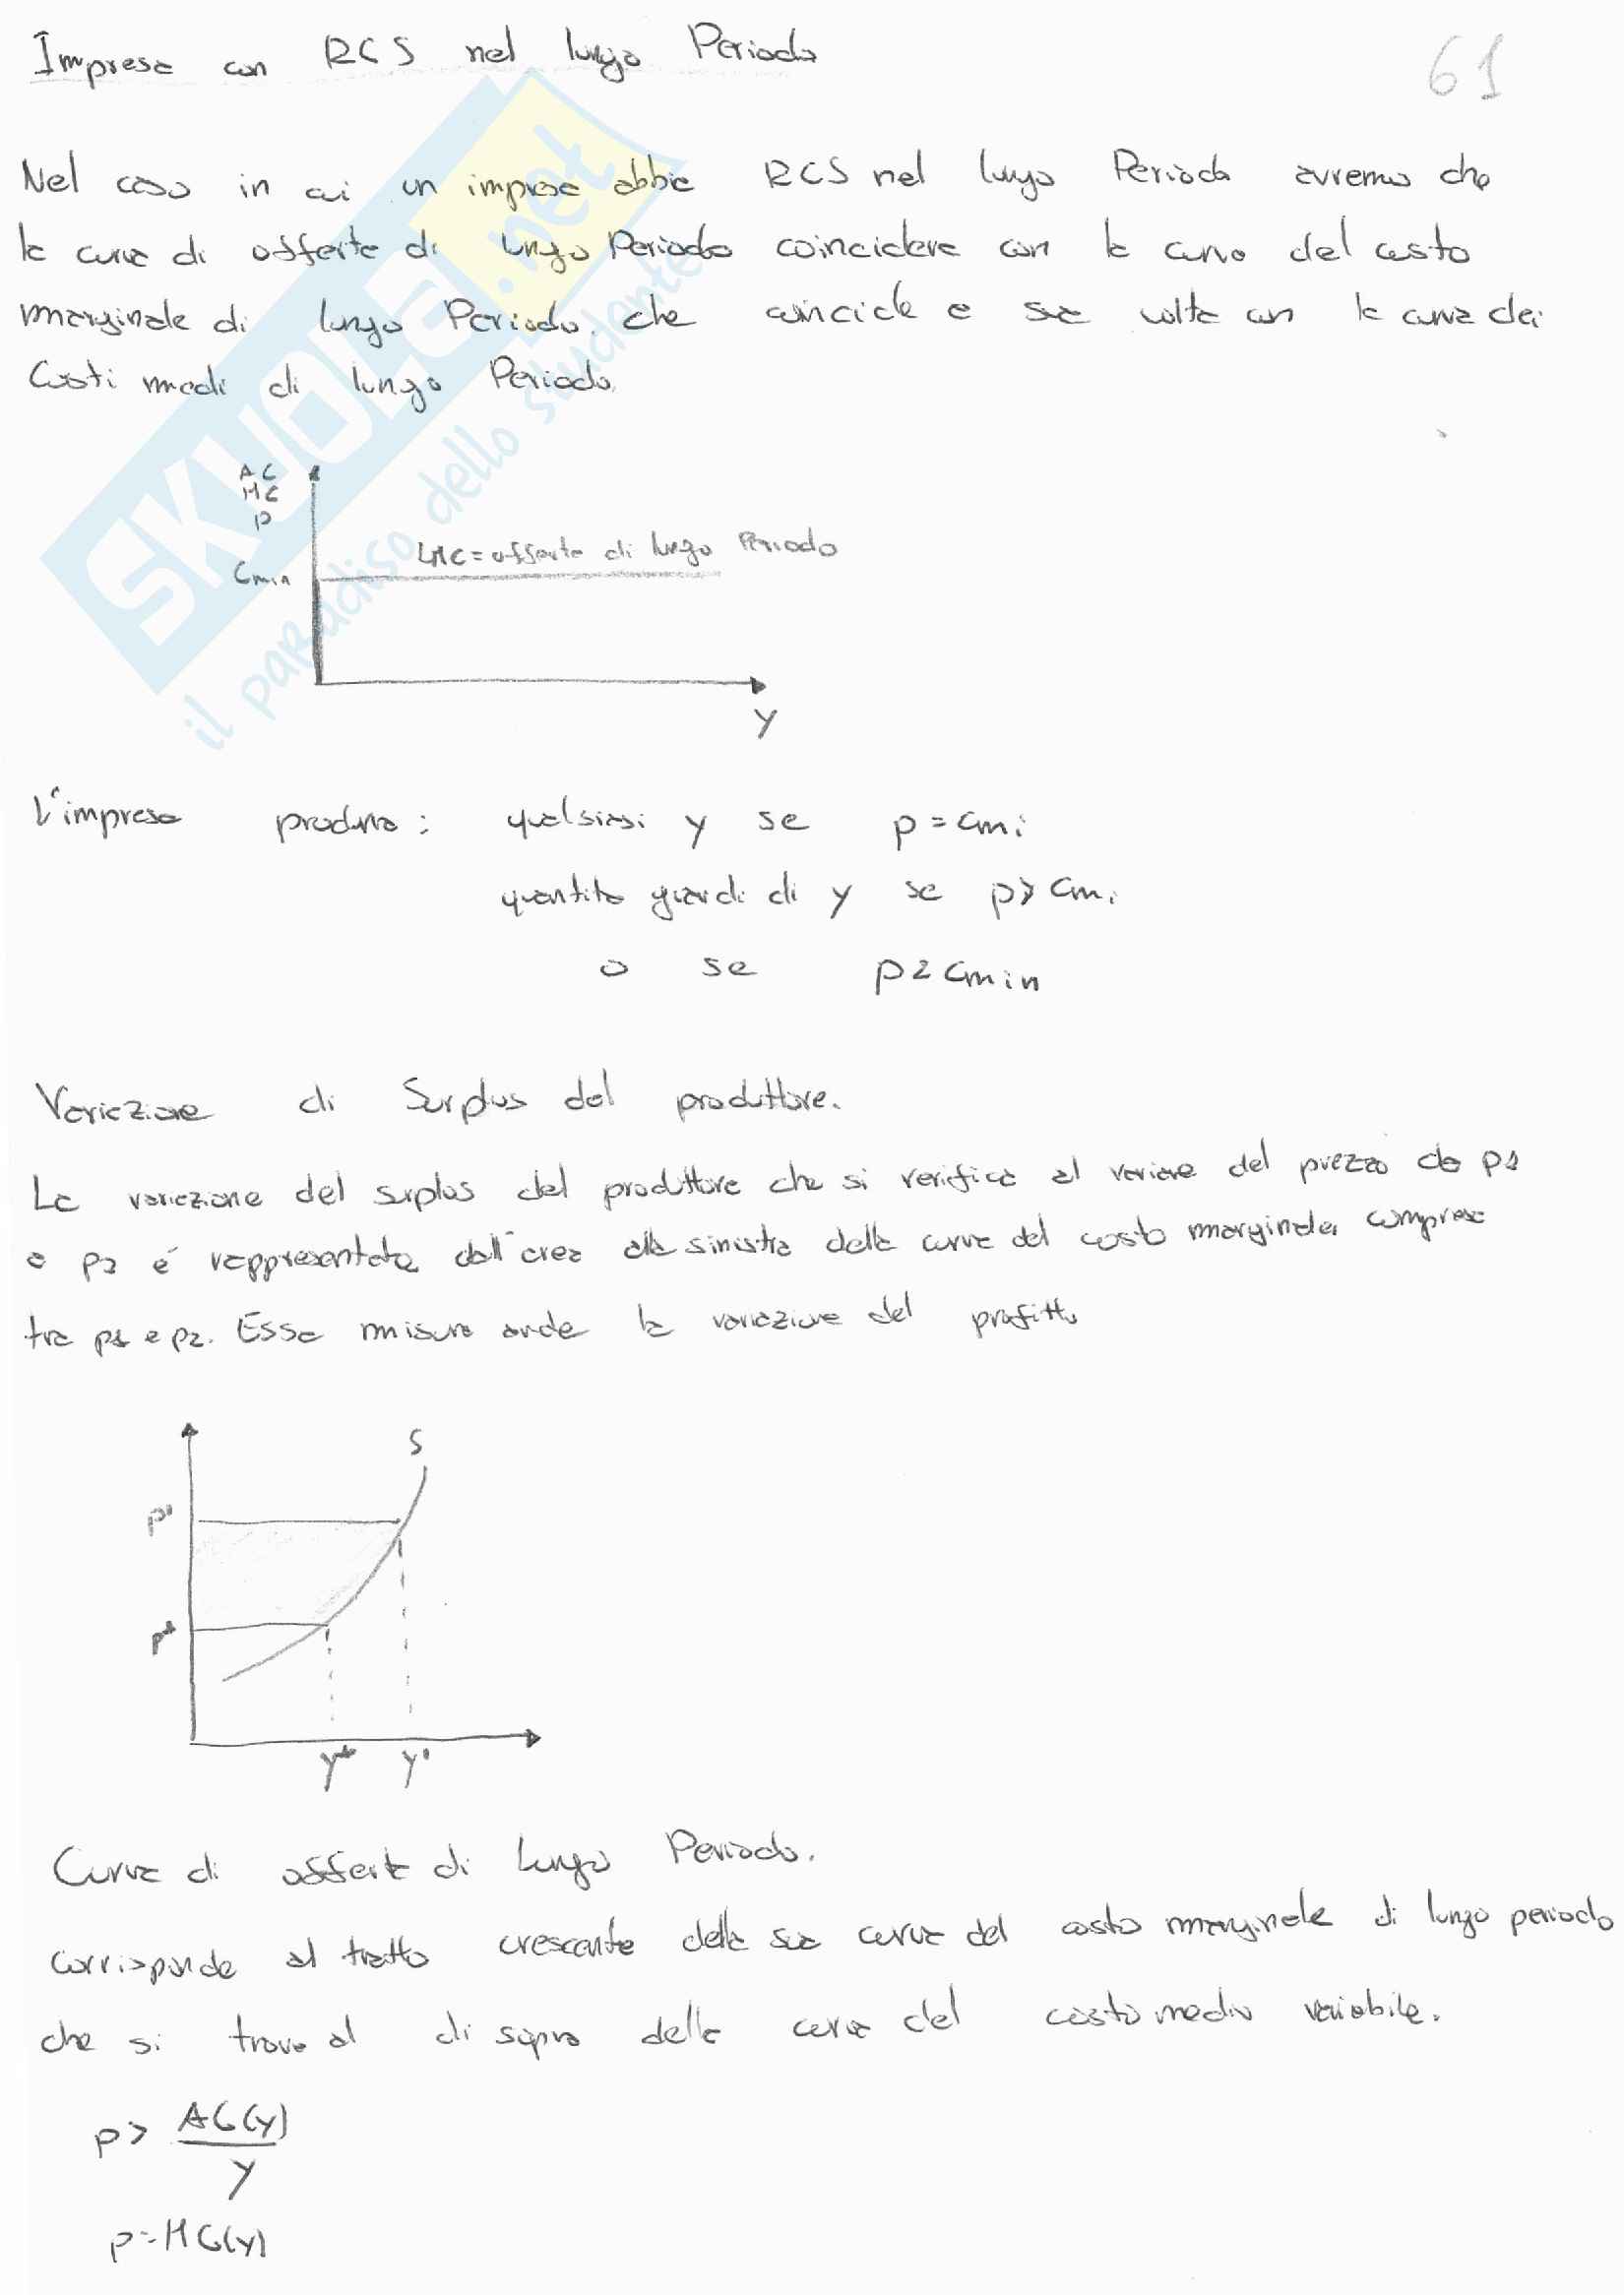 Impresa con RCS nel lungo Periodo
61
Nel caso in cui un impresa abbia RCS nel lungo Periodo avremo che
la curva di offerta di lungo Periodo coinciderà con la curva del costo
marginale di lungo Periodo, che coincide a sua volta con la curva dei
Costi medi di lungo Periodo.
AC
MC
P
LMC = offerta di lungo Periodo
Cmin
Y
L'impresa produrrà: qualsiasi y se p = cmi
quantità grandi di y se p > cmi
o se p < cmin
Variazione di Surplus del produttore.
La variazione del surplus del produttore che si verifica al variare del prezzo da p1
a p2 é rappresentata dall'area alla sinistra della curva del costo marginale, compresa
tra p1 e p2. Essa misura anche la variazione del profitto
S
p'
p*
y* y'
Curva di offerta di Lungo Periodo.
Corrisponde al tratto crescente della sua curva del costo marginale di lungo periodo
che si trova al di sopra della curva del costo medio variabile.
p > AC(y)
y
p = MC(y)
SKUOLA.net
il paradiso dello studente